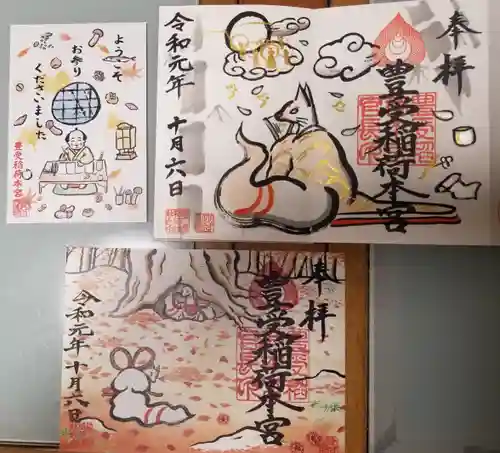 ようこそ
お参り
くださいました
豊受稲荷本宮
奉拝
豊受稲荷本宮
令和元年
十月六日
奉拝
豊受稲荷本宮
令和元年十月六日